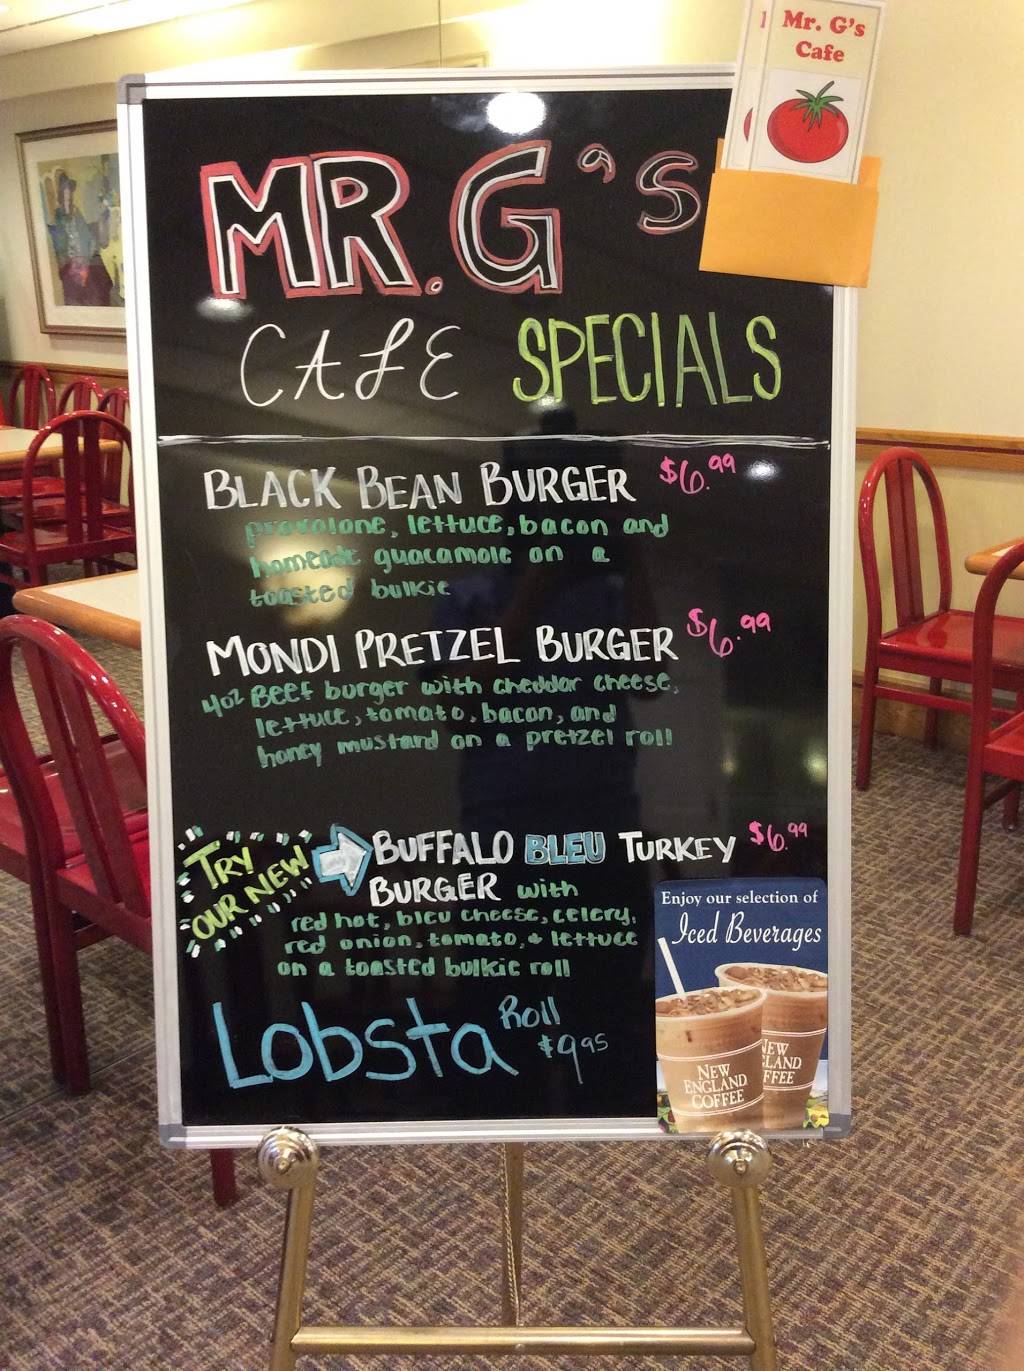 Mr. G's
Cafe
MR. G's
CAFE SPECIALS
BLACK BEAN BURGER $6.99
provalone, lettuce, bacon and
homeade guacamole on a
toasted bulkie
MONDI PRETZEL BURGER $6.99
4oz Beef burger with cheddar cheese,
lettuce, tomato, bacon, and
honey mustard on a pretzel roll
TRY
OUR NEW
BUFFALO BLEU TURKEY $6.99
BURGER with
red hot, bleu cheese, celery,
red onion, tomato, & lettuce
on a toasted bulkie roll
Lobsta Roll
$9.95
Enjoy our selection of
Iced Beverages
NEW
ENGLAND
COFFEE
NEW
GLAND
FFEE